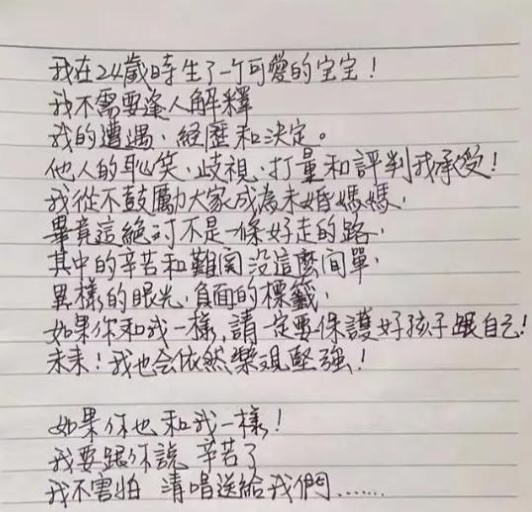 我在24歲時生了一个可愛的宝宝！
我不需要逢人解釋
我的遭遇、經歷和決定。
他人的恥笑、歧視、打量和評判我承受！
我從不鼓勵大家成為未婚媽媽，
畢竟這絕对不是一條好走的路，
其中的辛苦和難関没這麼简單，
異樣的眼光、負面的標籤，
如果你和我一樣，請一定要保護好孩子跟自己！
未来！我也会依然樂观堅强！
如果你也和我一樣！
我要跟你説 辛苦了
我不害怕 清唱送給我們……